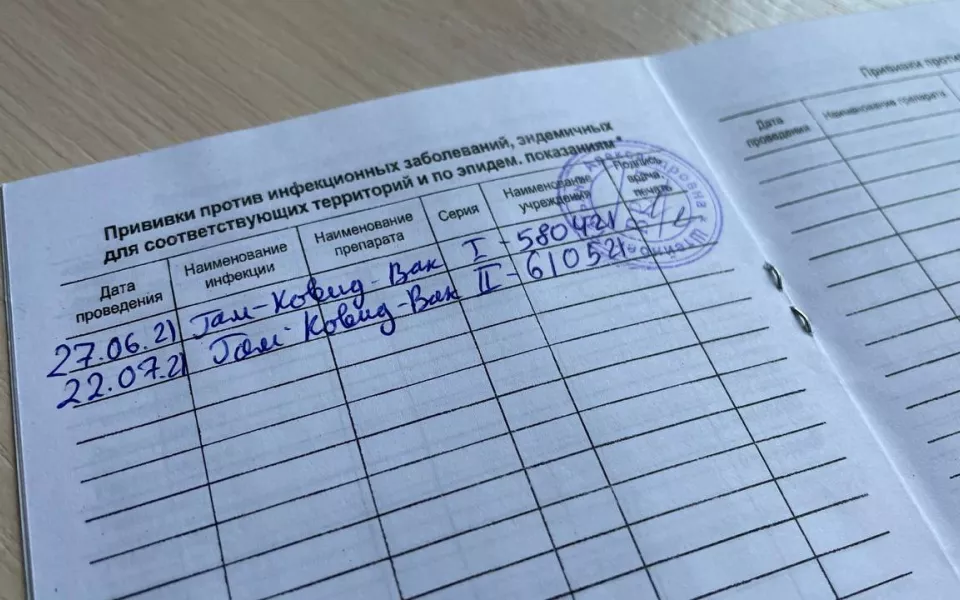 Прививки против инфекционных заболеваний, эндемичных
для соответствующих территорий и по эпидем. показаниям*
Дата
проведения
Наименование
инфекции
Наименование
препарата
Серия
Наименование
учреждения
Подпись
врача
печать
27.06.21 Гам-Ковид-Вак I - 580421
22.07.21 Гам-Ковид-Вак II - 610521
Прививки против
Дата
проведения
Наименование препарата